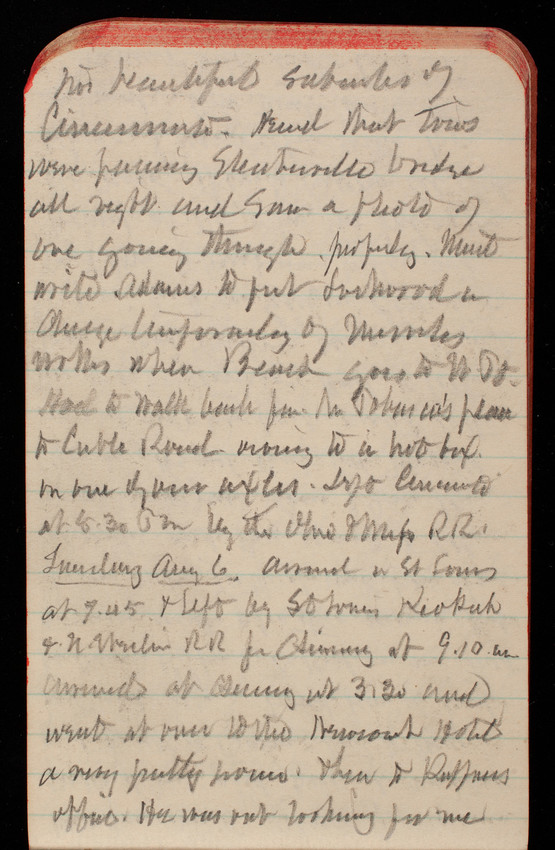 beautiful suburbs of
Cincinnati. Heard that tows
were passing Steubenville bridge
all right and saw a photo of
one going through properly. Must
write Adams to put Lockwood in
charge temporarily of
works when goes to
Had to walk back from Mr place
to Cable Road owing to a hot box
on one of our axles. Left Cincinnati
at 8.30 Pm by the Ohio & Miss RR.
Tuesday Aug 6. arrived in St Louis
at 7.45 & left by St Louis Keokuk
& N Western RR for Quincy at 9.10 am
arrived at Quincy at 3.30 and
went at once to the Newcomb Hotel
a very pretty house. Then to Ruffners
office. He was out looking for me